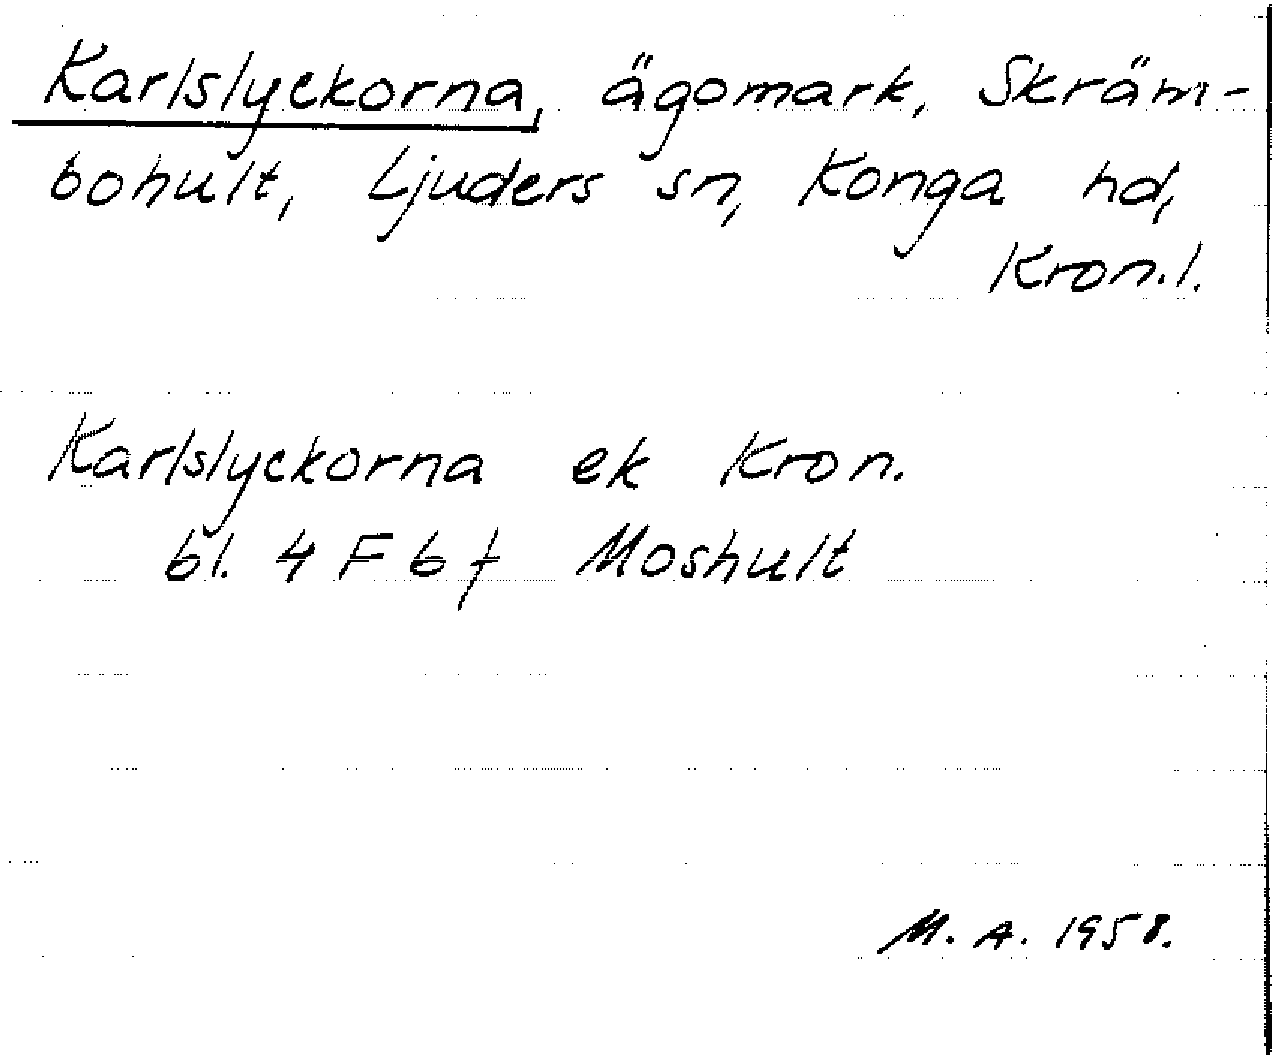 Karlslyckorna, ägomark, Skräm-
bohult, Ljuders sn, Konga hd,
Kron.l.
Karlslyckorna ek Kron.
bl. 4 F 6 f Moshult
M. A. 1958.